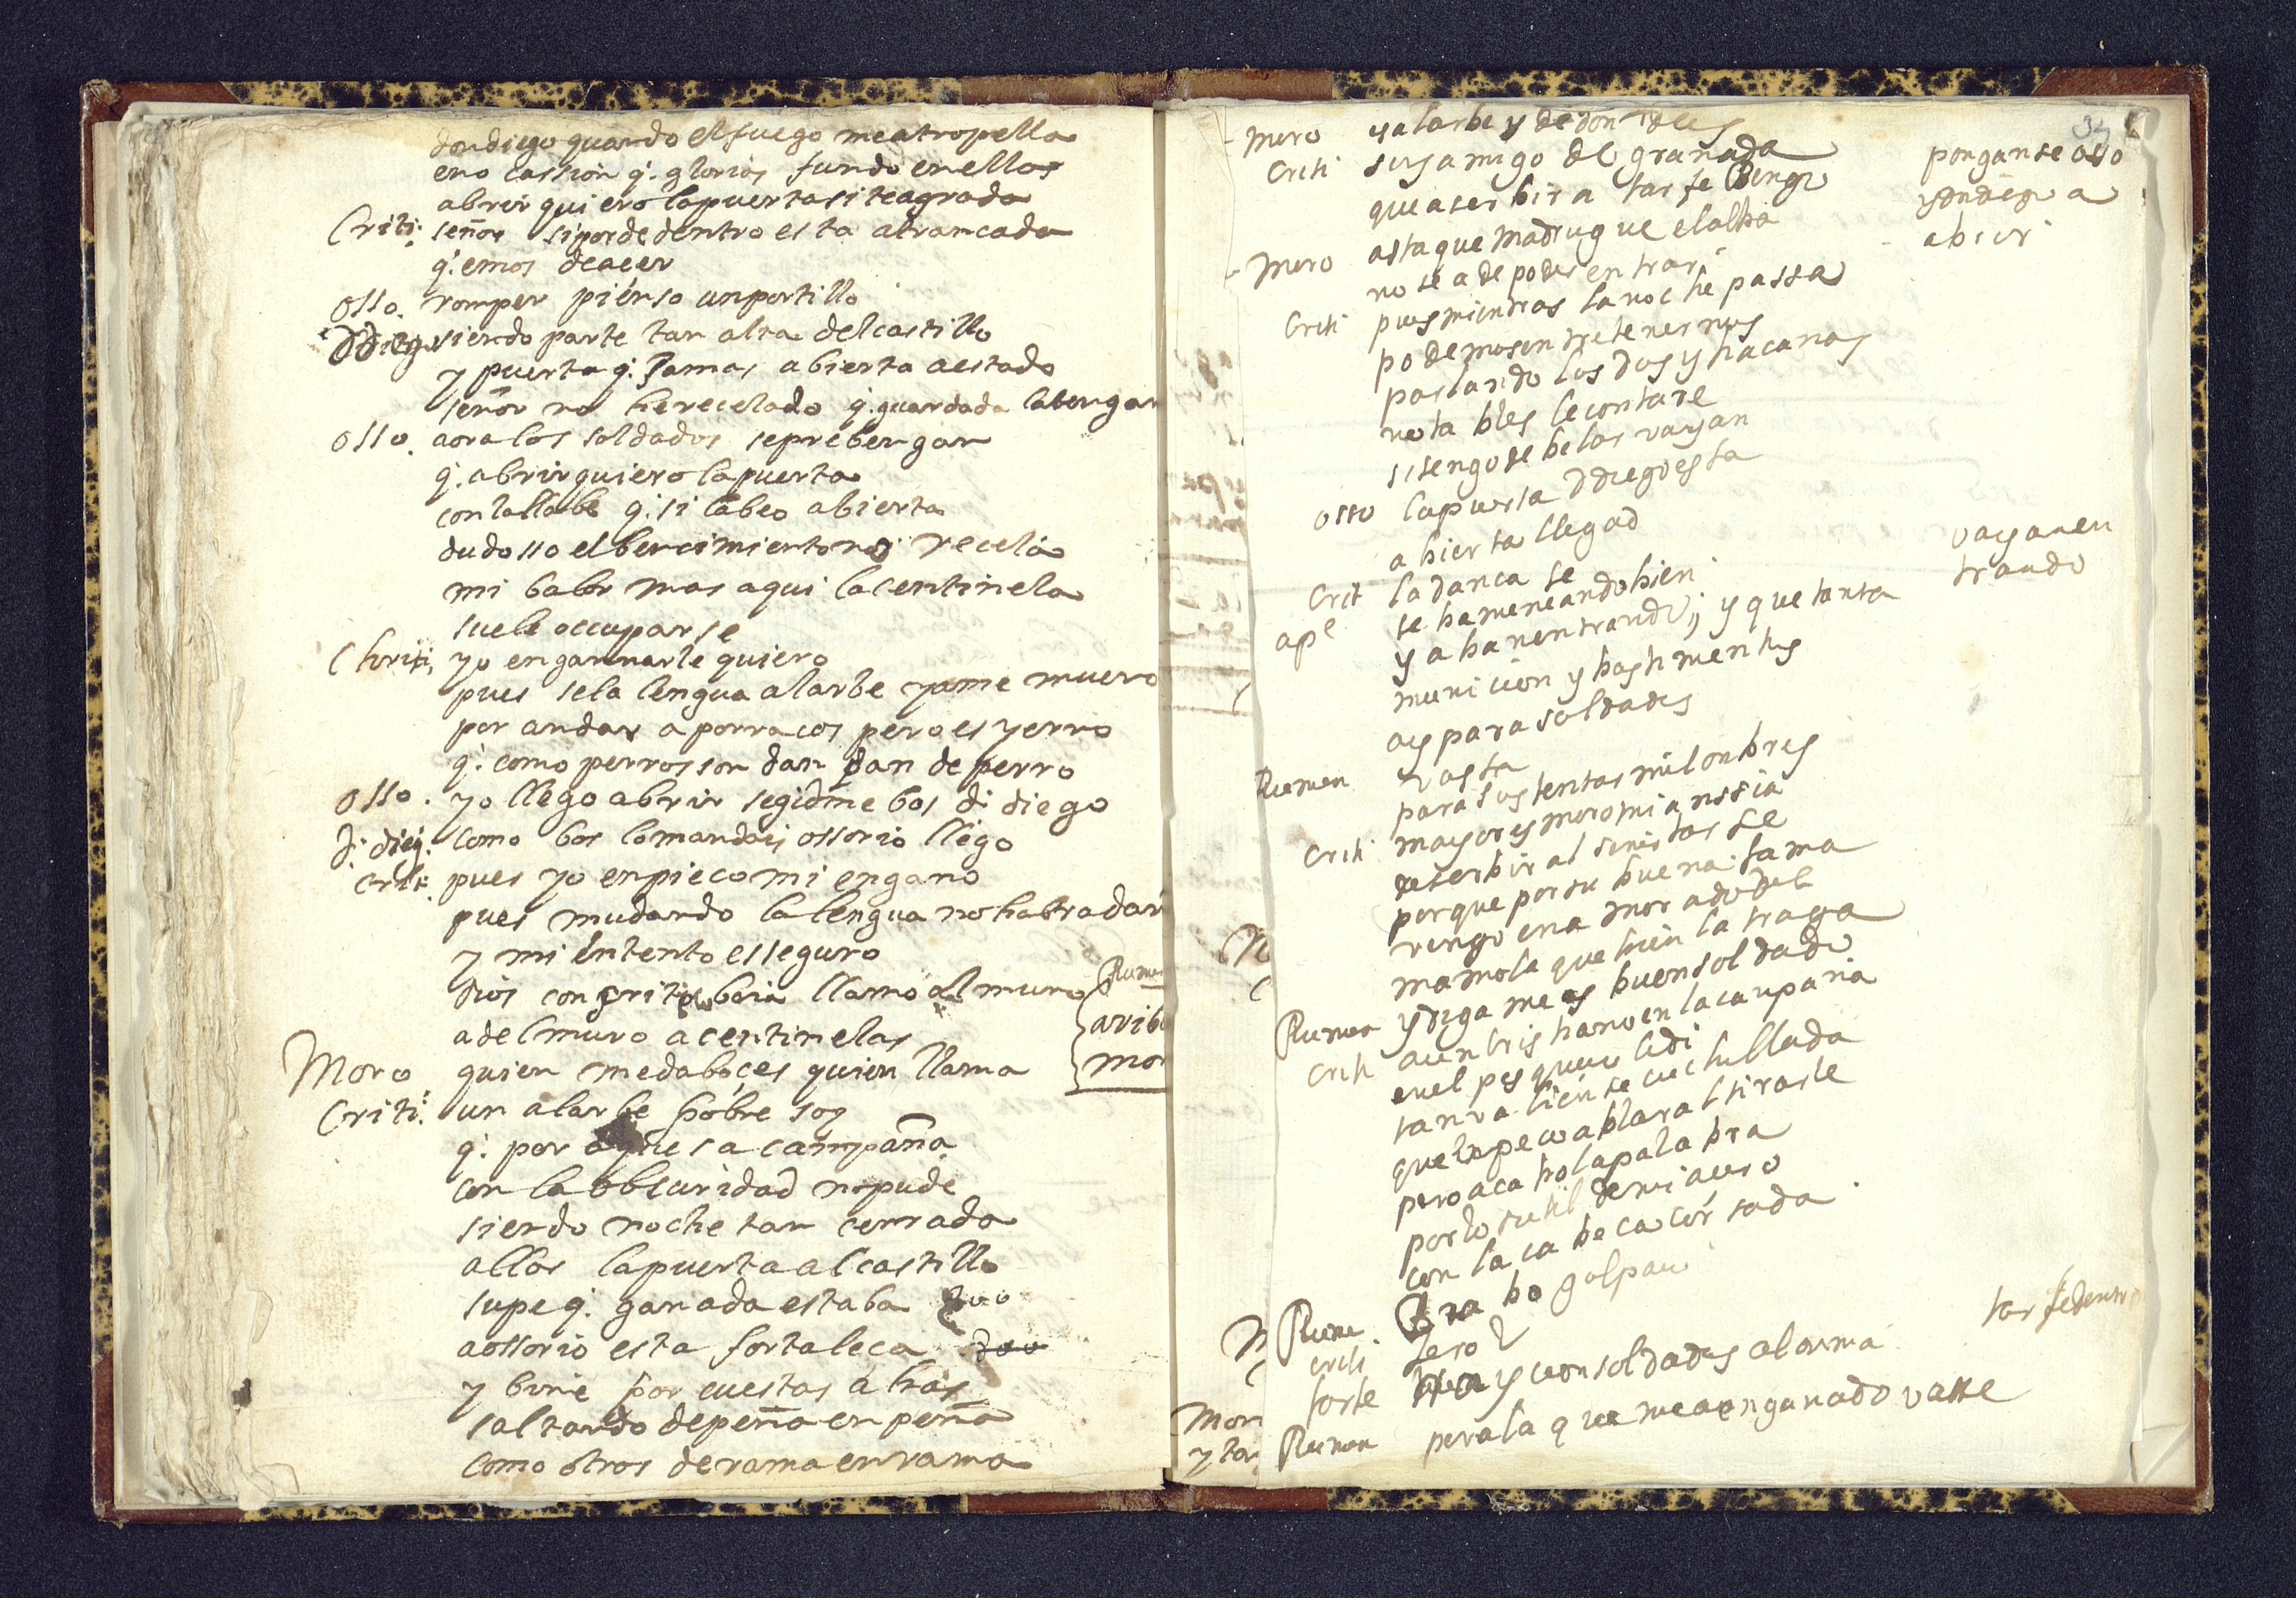 don diego quando el fuego me atropella
en o cassion q. glorias fundo en ellas
abrir quiero la puerta si te agrada
Criti. señor si por de dentro esta atrancada
q. emos de acer
Osso. romper pienso un portillo
D dieg. siendo parte tan alta del castillo
y puerta q. Jamas abierta a estado
señor no he recelado q. guardada la tengan
Osso. aora los soldados se prebengan
q. abrir quiero la puerta
con la llabe q. si la beo abierta
dudosso el bencimiento no recela
mi balor mas aqui la centinela
suele occuparse
Chriti. yo engannarle quiero
pues se la lengua alarbe ya me muero
por andar a porracos pero es yerro
q. como perros son dan pan de perro
Osso. yo llego abrir segidme bos d. diego
d. dieg. como bos lo mandais ossorio llego
Crit. pues yo enpieco mi engano
pues mudando la lengua no habra dañ
y mi intento es seguro
dios con baia llamo al muro
a del muro a centinelas
Rume
arib
mor
Moro quien me da boces quien llama
Criti. un alarbe pobre soy
q. por a campaña
con la obscuridad no pude
siendo noche tan cerrada
allar la puerta al castillo
supe q. ganada estaba
a ossorio esta fortaleca
y bine por cuestas atras
saltando de peña en peña
como otros de rama en rama
34
Moro ya larbe y de donde es
Criti soy amigo de granada
que a serbir a tarfe bengo
ponganse osso
y don diego a
abrir
Moro asta que madrugue el alba
no se a de poder entrar
Criti pues mientras la noche passa
podemos entretenernos
parlando los dos y hacanas
notables le contare
si tengo de belas vayan
Osso la puerta d diego esta
abierta llegad
Crit la danca se
se ha meneando bien
vayan en
trando
ap.e ya han entrando; y que tanta
municion y bastimentos
ay para soldados
Rumen vasta
para sustentar mil onbres
Criti mayor es moro mi anssia
de serbir al señor tarfe
porque por su buena fama
vengo enamorado del
mamola que bien la traga
Rumen y diga me es buen soldado
Criti aun bris hano en la canpaña
en el pesqueco le di
tan valiente cuchillada
que lo pecо ablar al tirarle
pero acabo la palabra
por lo sutil de mi acero
con la cabeca cortada
Rume. Brabo golpacо
Criti
tarfe dentro
tarfe soldados al arma
Rumen perala que me a enganado vasse
Mor
y tar